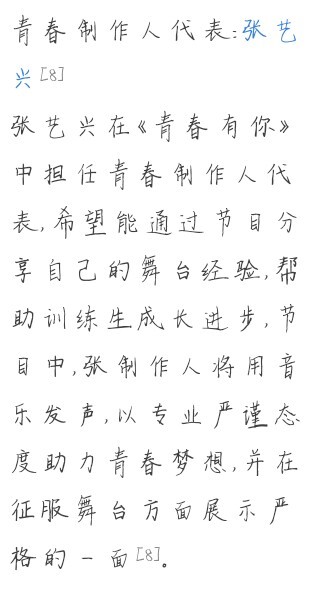 青春制作人代表:张艺
兴[8]
张艺兴在《青春有你》
中担任青春制作人代
表,希望能通过节目分
享自己的舞台经验,帮
助训练生成长进步,节
目中,张制作人将用音
乐发声,以专业严谨态
度助力青春梦想,并在
征服舞台方面展示严
格的一面[8]。